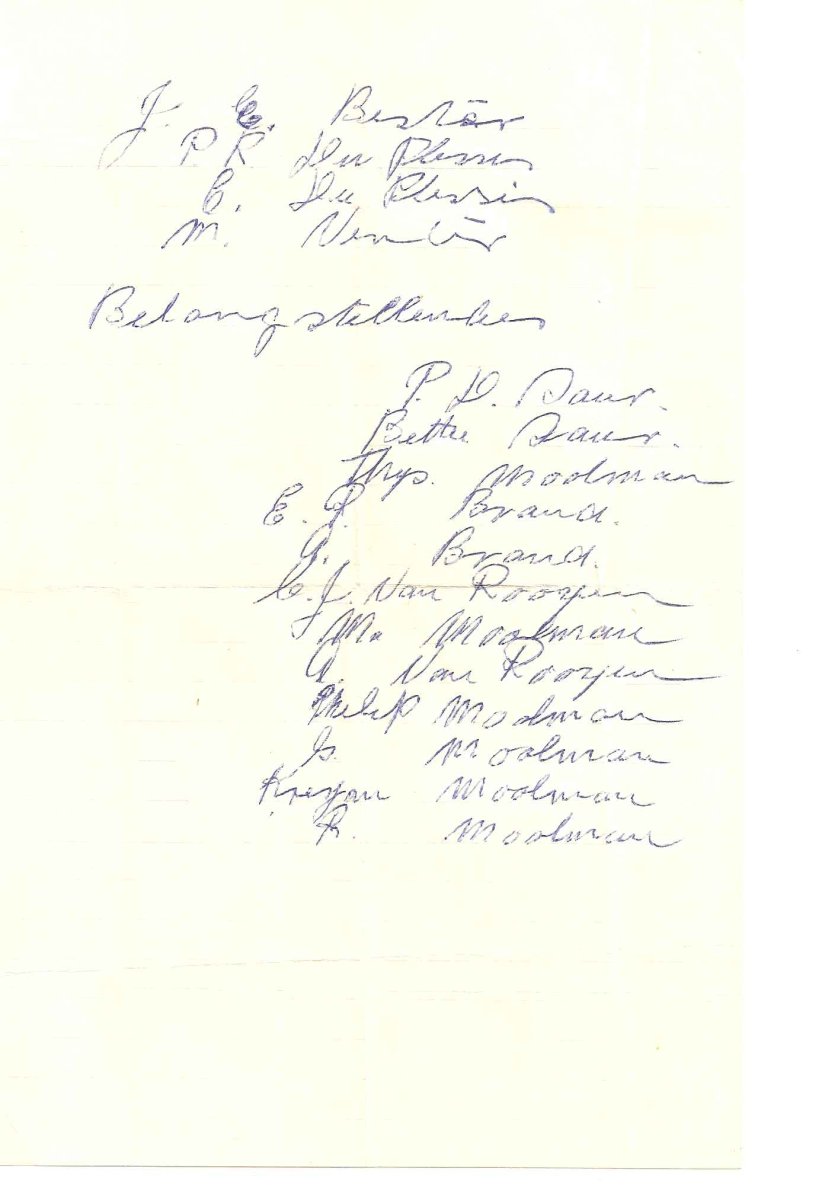 J. C. Bestär
P R Du Plessis
C. Du Plessis
M. Ventēr
Belangstellendes
P. D. Saur.
Bettie Saur.
Thys. Moolman
E. P. Brand.
A. Brand.
C. J. Van Rooyen
Ma Moolman
A. Van Rooyen
Philip Moolman
G. Moolman
Moolman
R. Moolman